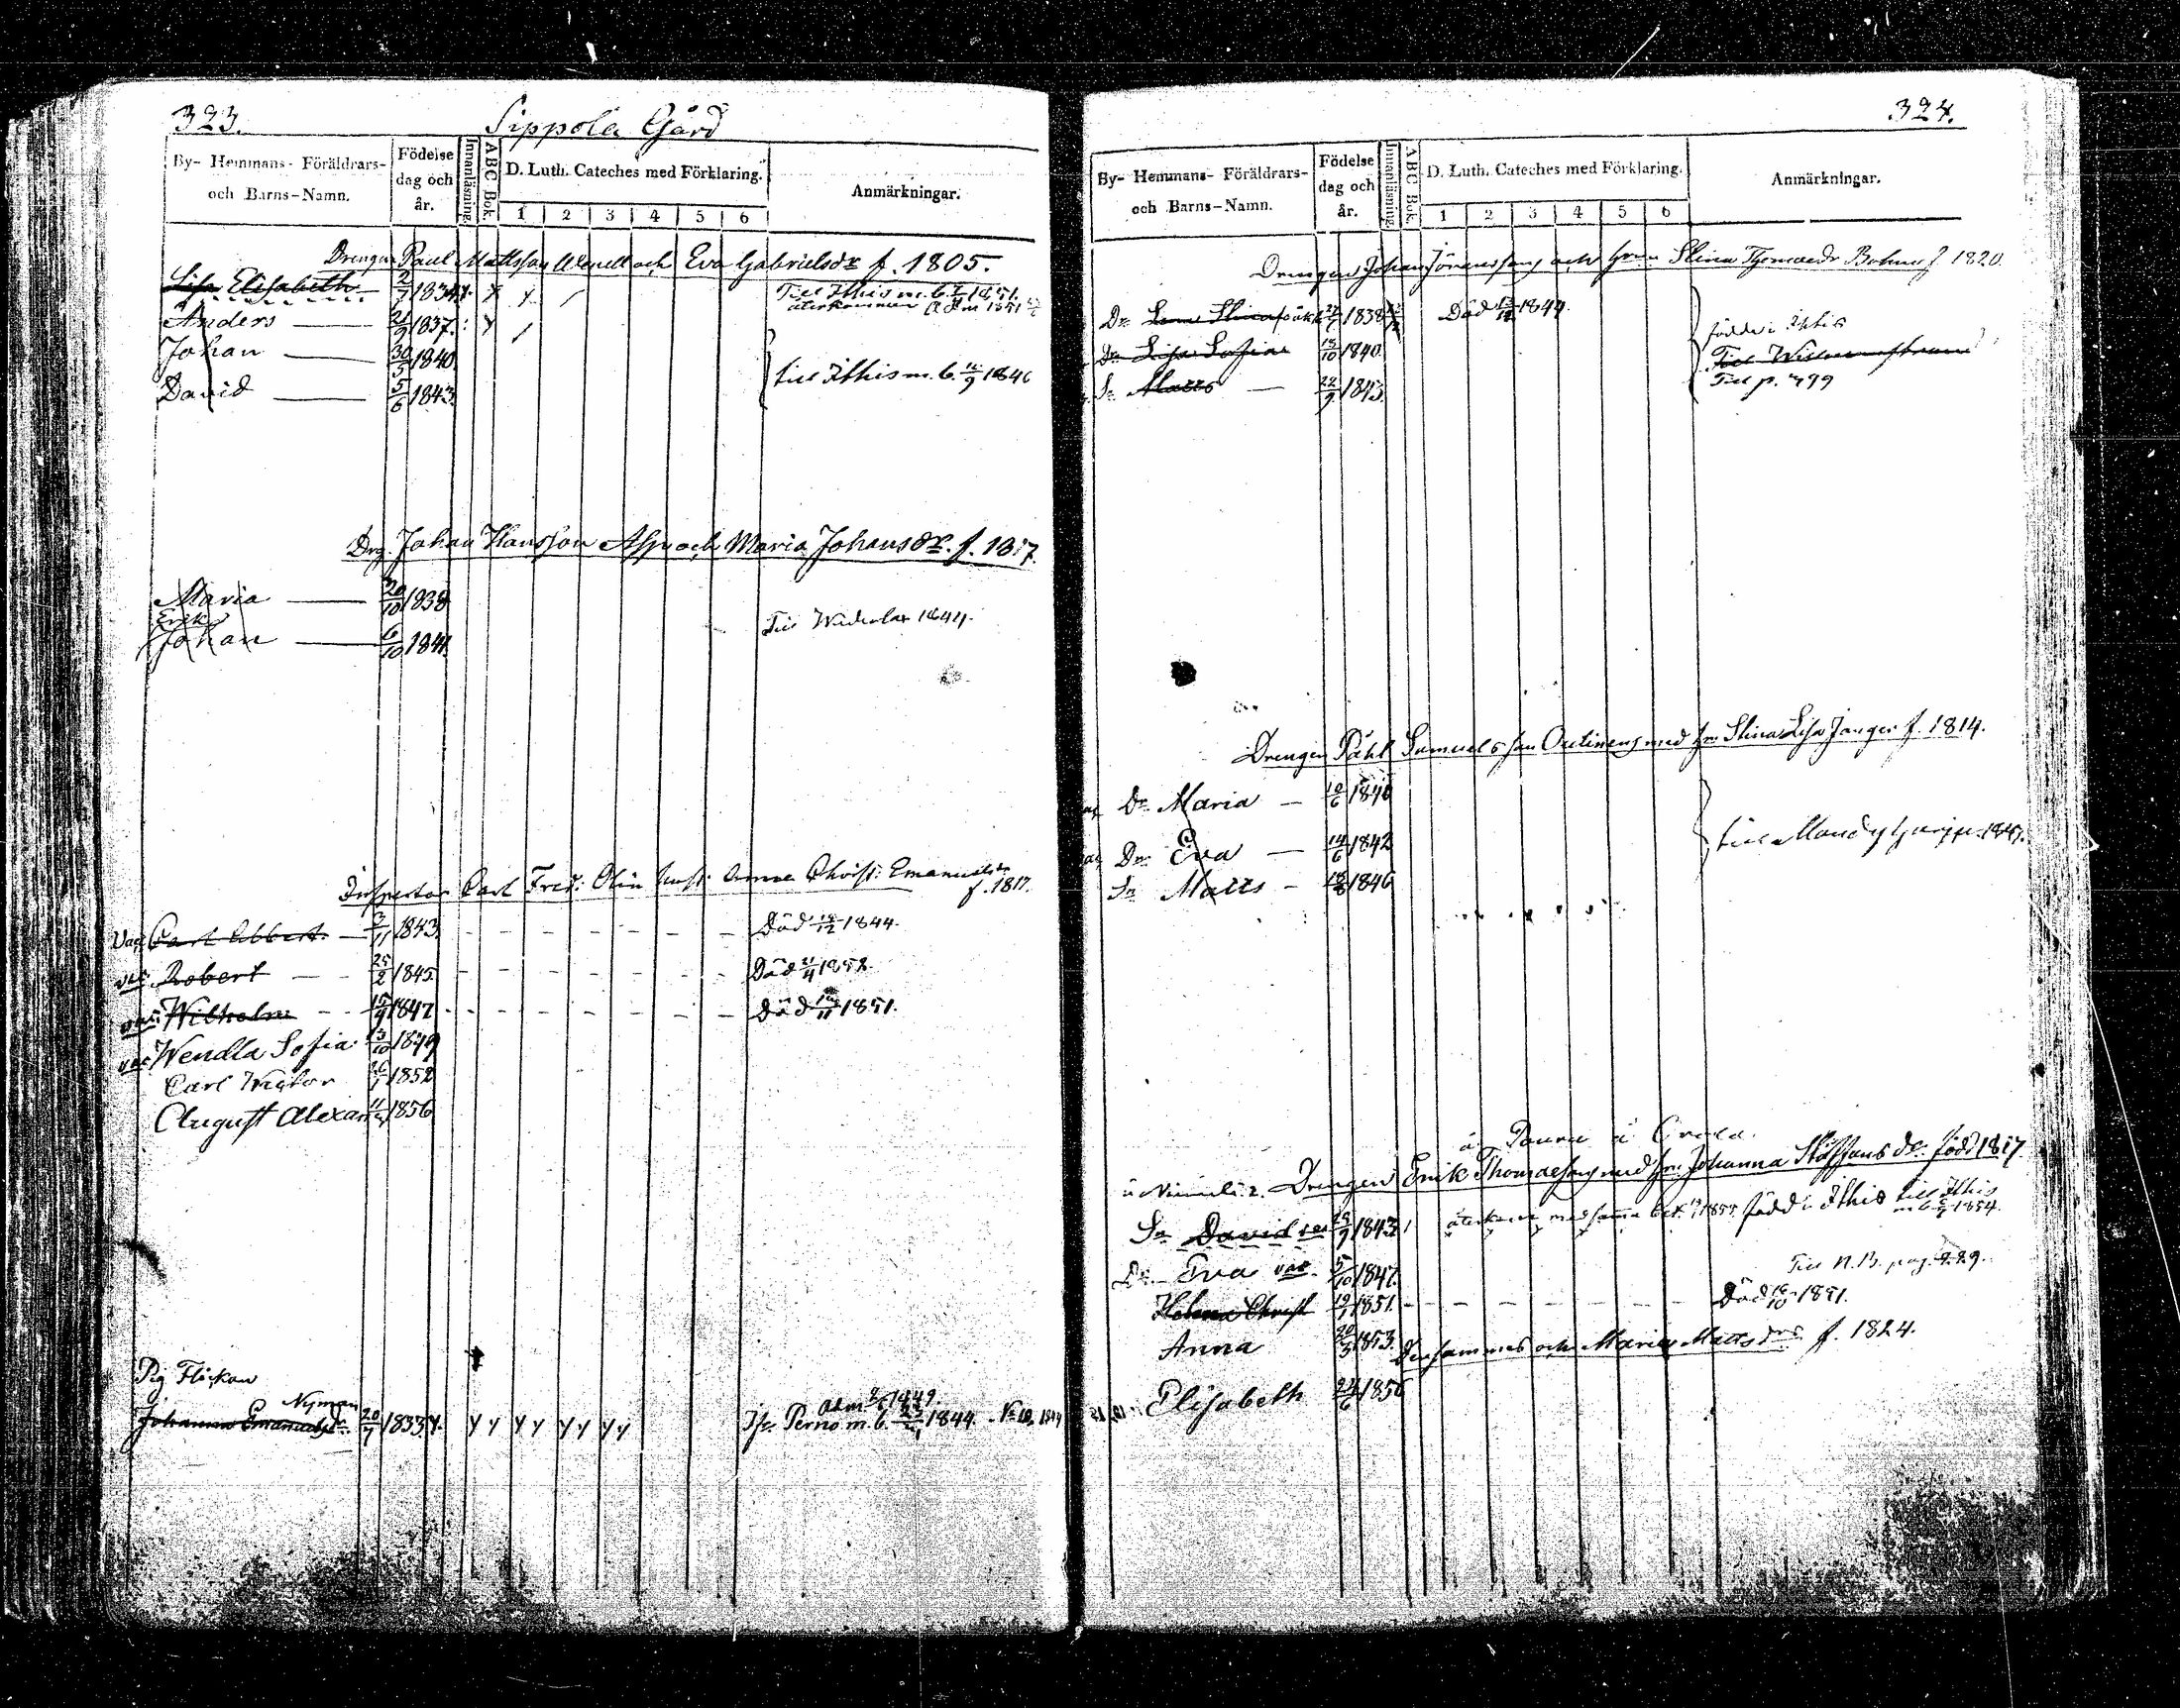 323.
Sippola Gård
By- Hemmans- Föräldrars- och Barns-Namn.
Födelse dag och år.
Innanläsning.
ABC Bok.
D. Luth. Cateches med Förklaring.
1 2 3 4 5 6
Anmärkningar.
Drengen Paul Mattsson och Eva Gabrielsdr f. 1805.
Lisa Elisabeth 2/7 1834 Till Ithis m. b. 1851.
återkommen 1851
Anders 21/9 1837.
Johan 30/5 1840
David 5/6 1843. till Ithis m. b. 11/9 1846
Drg. Johan Hansson Asp och Maria Johansdr. f. 1817.
Maria 20/10 1838
Erik
Johan 6/10 1841. Till 1844.
Inspector Carl Fred: Olin hust: Anna Christ: Emanuelsdr
f. 1817.
Vac Carl Albert. 3/11 1843. Död 18/12 1844.
vac Robert 25/2 1845 Död 21/4 1852.
vac Wilhelm 15/9 1847 Död 1851.
vac Wendla Sofia 13/10 1849
Carl Victor 26/1 1852
August Alexan 1856
Pig Flickan
Nyman
Johanna Emanuelsdr. 20/7 1833 y. y y y y y y y y Ifr. Perno m. b. 1844.
324.
By- Hemmans- Föräldrars- och Barns-Namn.
Födelse dag och år.
Innanläsning
ABC Bok.
D. Luth. Cateches med Förklaring.
1 2 3 4 5 6
Anmärkningar.
Drengen Johan Göransson och hru Stina Thomaedr f. 1820.
Dr. Stina 1838 Död 1844.
födde i Ithis
Dr. Lisa Sofia 15/10 1840.
Sn Matts 22/9 1843. Till p. 499
Drengen Påhl Samuelsson Outinen med hru Stina Lisa f. 1814.
Dr. Maria 1840
Dr. Eva 14/6 1842
Sn Matts 18/8 1846
Drengen Erik Thomaeson med hru Johanna Staffansdr. född 1817
Sn David vac 1843 återkom med samma bet. 1855. född i Ithis till Ithis
1854.
Dr. Eva vac. 5/10 1847. Till N.B. pag.
Helena Christ 19/1 1851. Död 1851.
Anna 20/3 1853. Densammes och Maria Mattsdrs f. 1824.
Elisabeth 24/6 1856